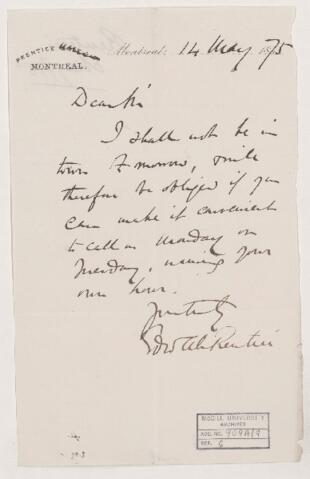 PRENTICE
MONTREAL.
Montreal, 14 May 1875
Dear Sir
I shall not be in
town tomorrow, & will
therefore be obliged if you
can make it convenient
to call on Monday or
Tuesday, naming your
own hour.
Yours truly
Edw Al Prentice
McGILL UNIVERSITY
ARCHIVES
ACC. NO. 909A/9
REF. 6